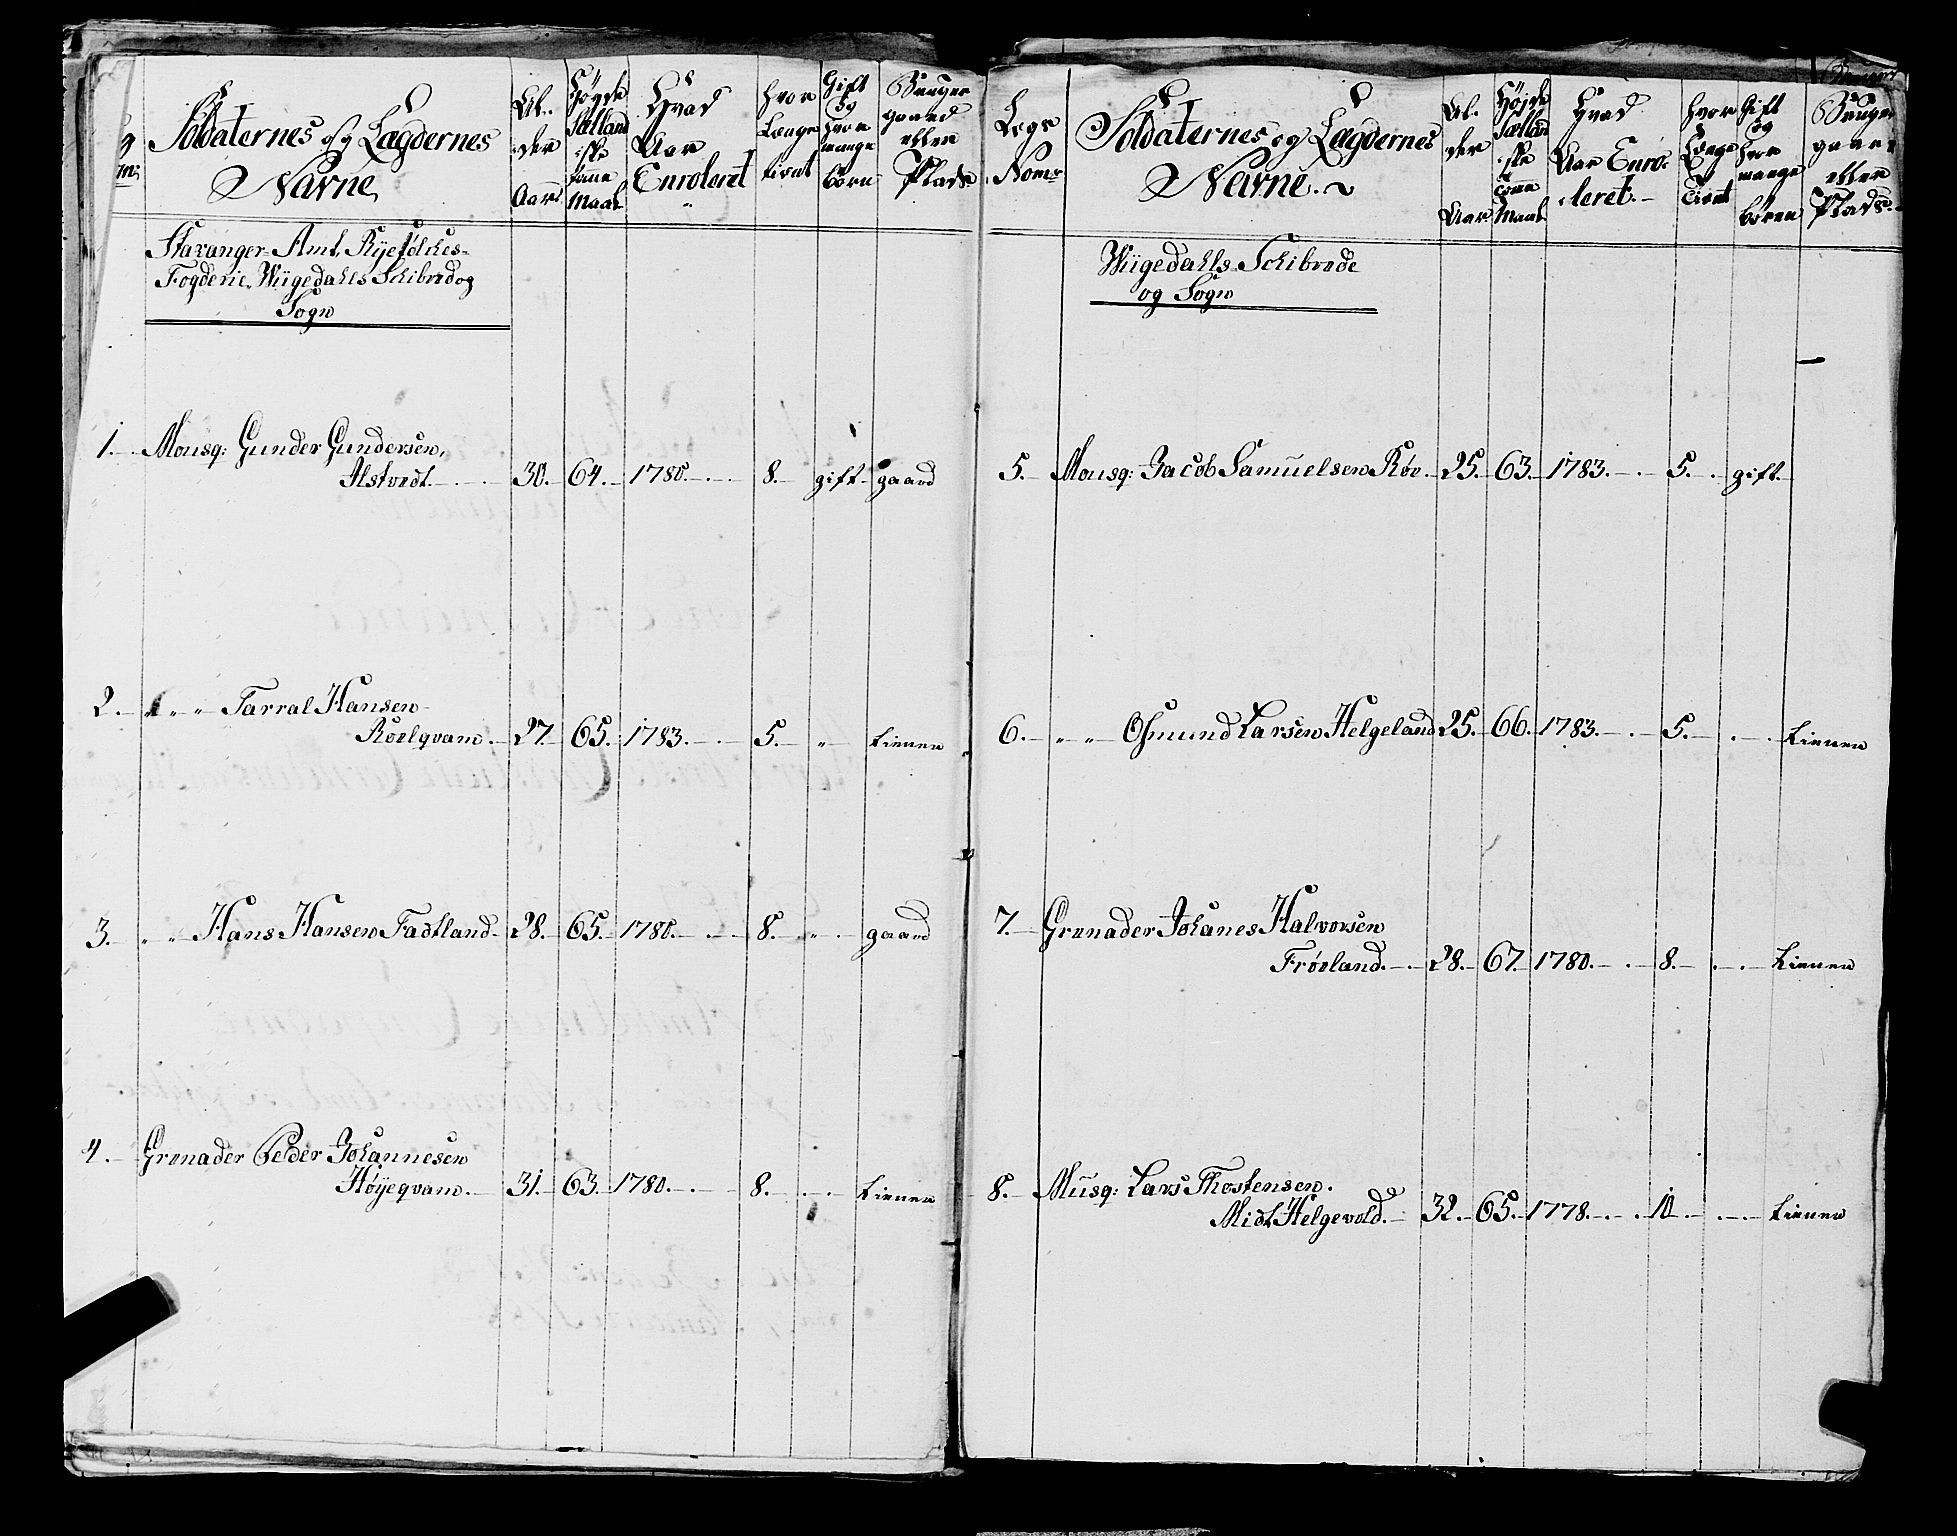 Soldaternes og Lægdernes
Navne,
Al-
der
Aar
Høyde
Sælland
-ske
tome
Maal
Hvad
Aar
Enroleret
hvor
Længe
tient
Gift
og
hvor
mange
børn
Bruger
gaard
eller
Plads
Stavanger-Amt, Ryefølckes-
Fogderie, Wiigedahls Schibredog
Sogn
1. Mousq: Gunder Gundersen,
Alstvedt. 30. 64. 1780. 8. gift gaard
2. " " Tarral Hansen
Röelqvam. 27. 65. 1783. 5. " tienner
3. " " Hans Hansen Fadtland. 28. 65. 1780. 8. " gaard
4. Grenader Peder Johannesen
Høyeqvam. 31. 63. 1780. 8. tienner
Legs
Nom:
Soldaternes og Lægdernes
Navne.
Al-
der
Aar
Højde
Sælland
-ske
tomme
Maal
Hvad
Aar Enro-
leret.
hvor
Længe
Tient
Gift
og
hvor
mange
børen
Bruger
gaard
eller
Plads.
Wiigedahls-Schibrede
og Sogn
5. Mousq: Jacob Samuelsen Röe. 25. 63. 1783. 5. gift.
6. " " Osmund Larsen Helgeland 25. 66. 1783. 5. tienner
7. Grenader Johanes Halvorsen
Frøeland. 28. 67. 1780. 8. tienner
8. Musq: Lars Thostensen.
Midt Helgevold. 32. 65. 1778. 10 tienner